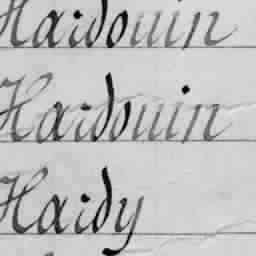 Hardouin
Hardouin
Hardy